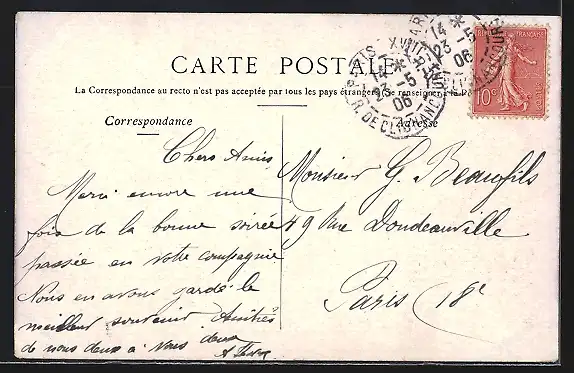 CARTE POSTALE
La Correspondance au recto n'est pas acceptée par tous les pays étrangers. (Se renseigner à la
Correspondance
Adresse
Chers Amis
Merci encore une
fois de la bonne soirée
passée en votre compagnie
Nous en avons gardé le
meilleur souvenir Amitiés
de nous deux à vous deux
Monsieur G. Beaufils
49 Rue Doudeauville
Paris 18e
PARIS XVIII
14
23 -5
06
R. DE CLIGNANCOURT
14
23 -5
06
REPUBLIQUE FRANÇAISE
10c
POSTES